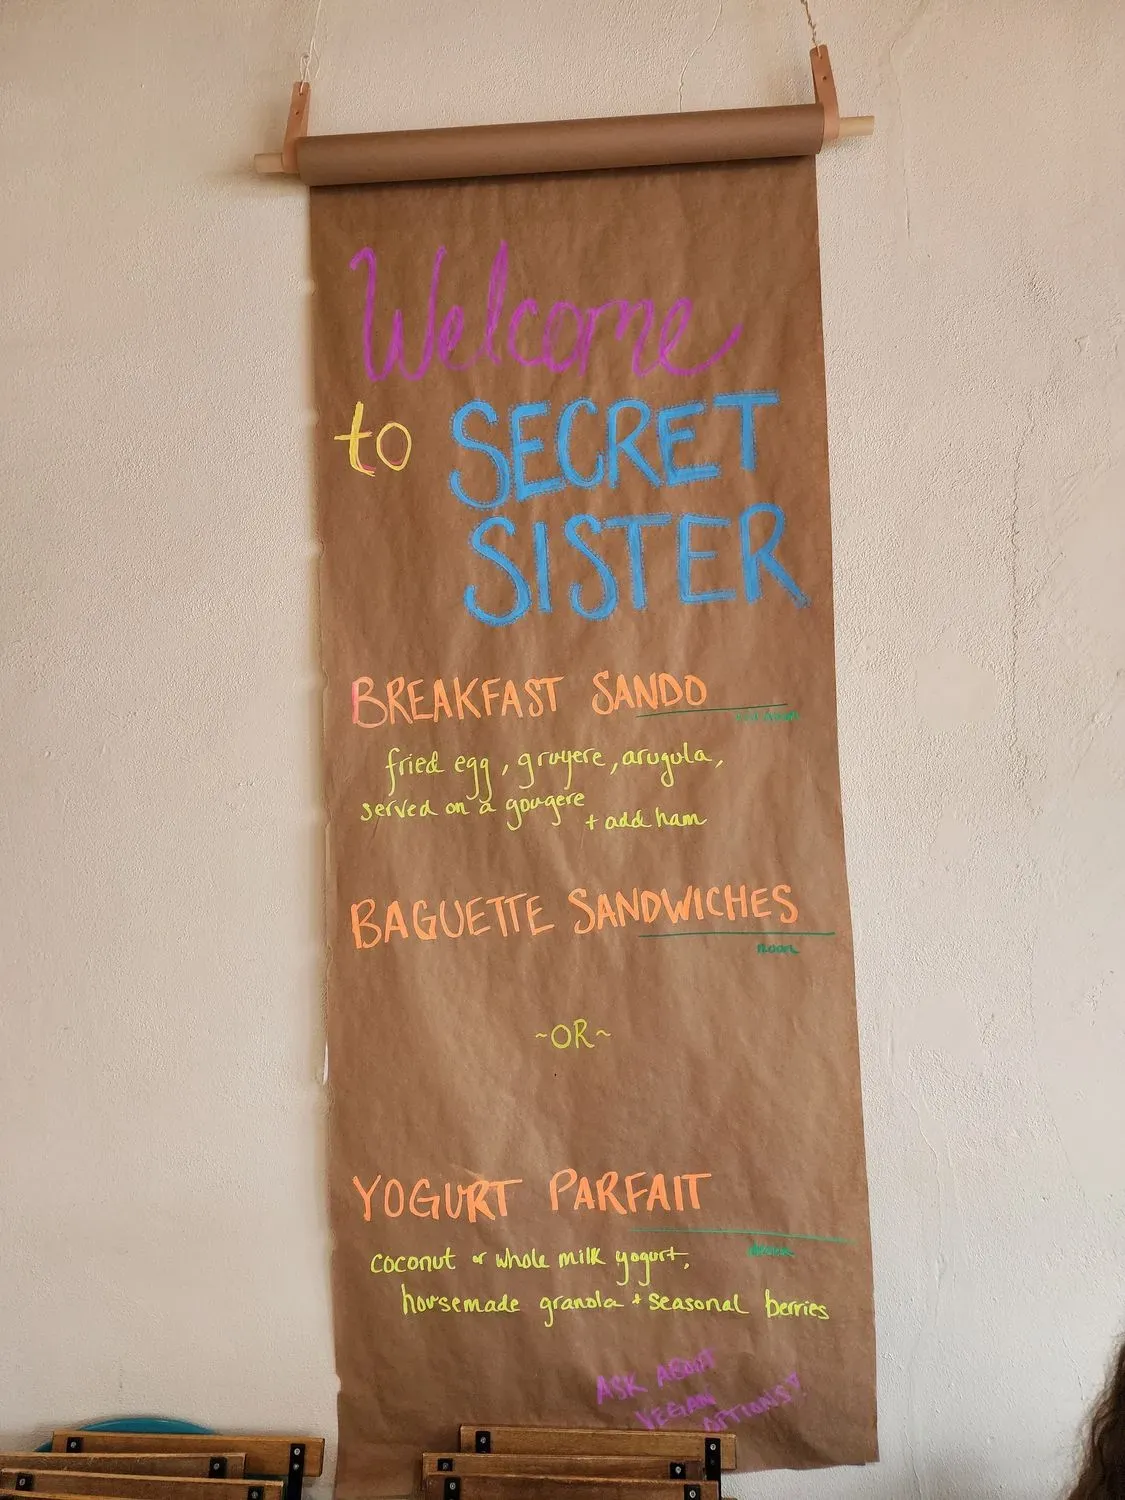 Welcome
to SECRET
SISTER
BREAKFAST SANDO
fried egg, gruyere, arugula,
served on a gougere
+ add ham
BAGUETTE SANDWICHES
NOON
~OR~
YOGURT PARFAIT
coconut or whole milk yogurt,
housemade granola + seasonal berries
ASK ABOUT
VEGAN
OPTIONS!